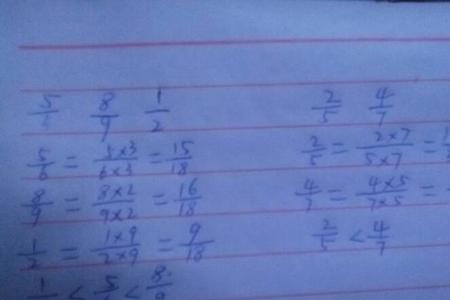 5/6 8/9 1/2
5/6 = 5×3/6×3 = 15/18
8/9 = 8×2/9×2 = 16/18
1/2 = 1×9/2×9 = 9/18
1/2 < 5/6 < 8/9
2/5 4/7
2/5 = 2×7/5×7 =
4/7 = 4×5/7×5 =
2/5 < 4/7